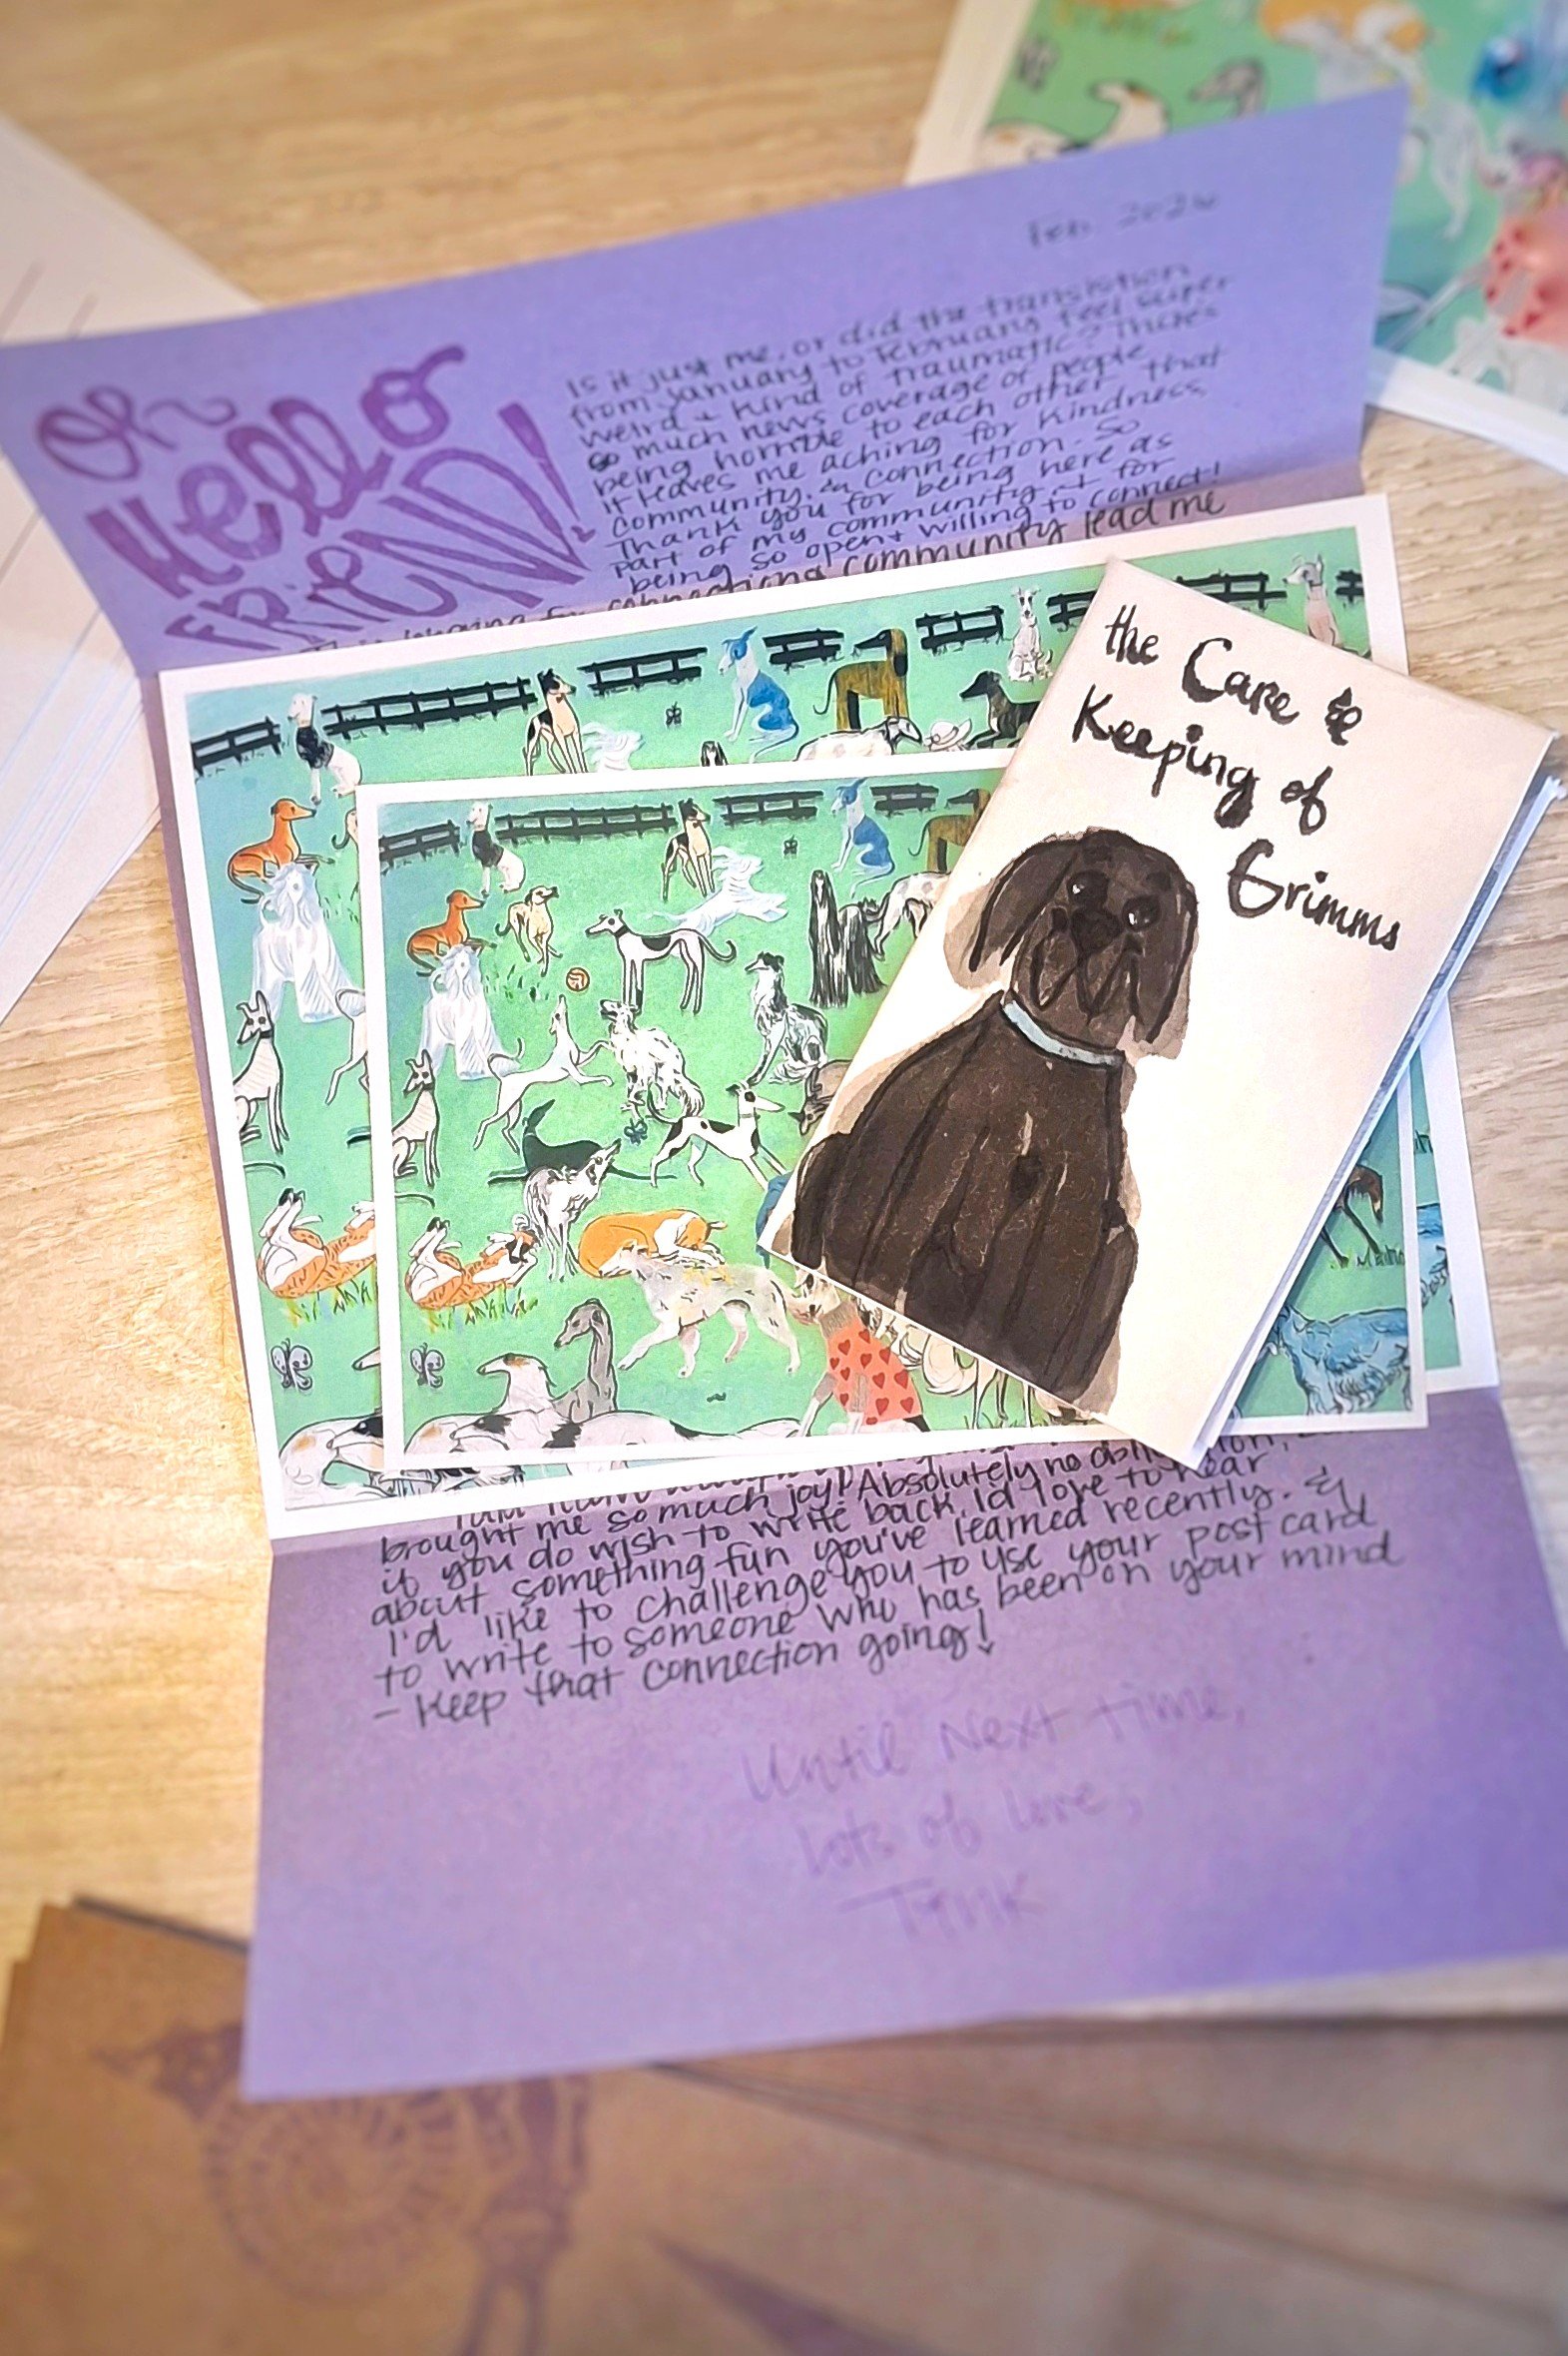 Feb. 2026
Oh
Hello
FRIEND!
Is it just me, or did the transistion
from January to February feel super
weird & kind of traumatic? There's
so much news coverage of people
being horrible to each other that
it leaves me aching for kindness,
community, & connection. So
Thank you for being here as
part of my community, & for
being so open & willing to connect!
longing for connections community lead me
the Care &
Keeping of
Grimms
brought me so much joy! Absolutely no obligation,
if you do wish to write back, I'd love to hear
about something fun you've learned recently. &
I'd like to challenge you to use your postcard
to write to someone who has been on your mind
- Keep that connection going!
Until Next time,
Lots of Love,
Tink